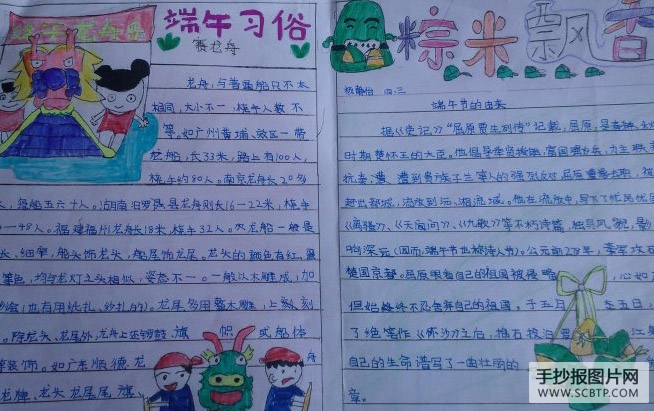 端午习俗
赛龙舟
龙舟,与普通船只不太
相同,大小不一,桡手人数不
等。如广州黄埔、郊区一带
龙船,长33米,路上有100人,
桡手约80人。南京龙舟长20多
,每船五六十人。湖南汨罗县龙舟则长16—22米,桡手
—48人。福建福州龙舟长18米,桡手32人。龙船一般是
长,细窄,船头饰龙头,船尾饰龙尾。龙头的颜色有红、黑
等色,均与龙灯之头相似,姿态不一。一般以木雕成,加
(也有用纸扎、纱扎的)。龙尾多用整木雕,上刻
。除龙头、龙尾外,龙舟上还有锣鼓、旗帜或船体
装饰。如广东顺德龙舟
龙牌、龙头龙尾旗、
粽米飘香
四.三
端午节的由来
据《史记》“屈原贾生列传”记载,屈原,是春秋
时期楚怀王的大臣。他倡导举贤授能,富国强兵,力主联
抗秦,遭到贵族子兰等人的强烈反对,屈原遭
赶出都城,流放到沅、湘流域。他在流放中,写下了忧国忧民
《离骚》、《天问》、《九歌》等不朽诗篇,独具风貌,影
响深远(因而,端午节也称诗人节)。公元前278年,秦军攻
楚国京都。屈原眼看自己的祖国被侵略,心如
但始终不忍舍弃自己的祖国,于五月五日,
了绝笔作《怀沙》之后,抱石投汨江
自己的生命谱写了一曲壮丽的
章。
手抄报图片网
www.SCBTP.COM